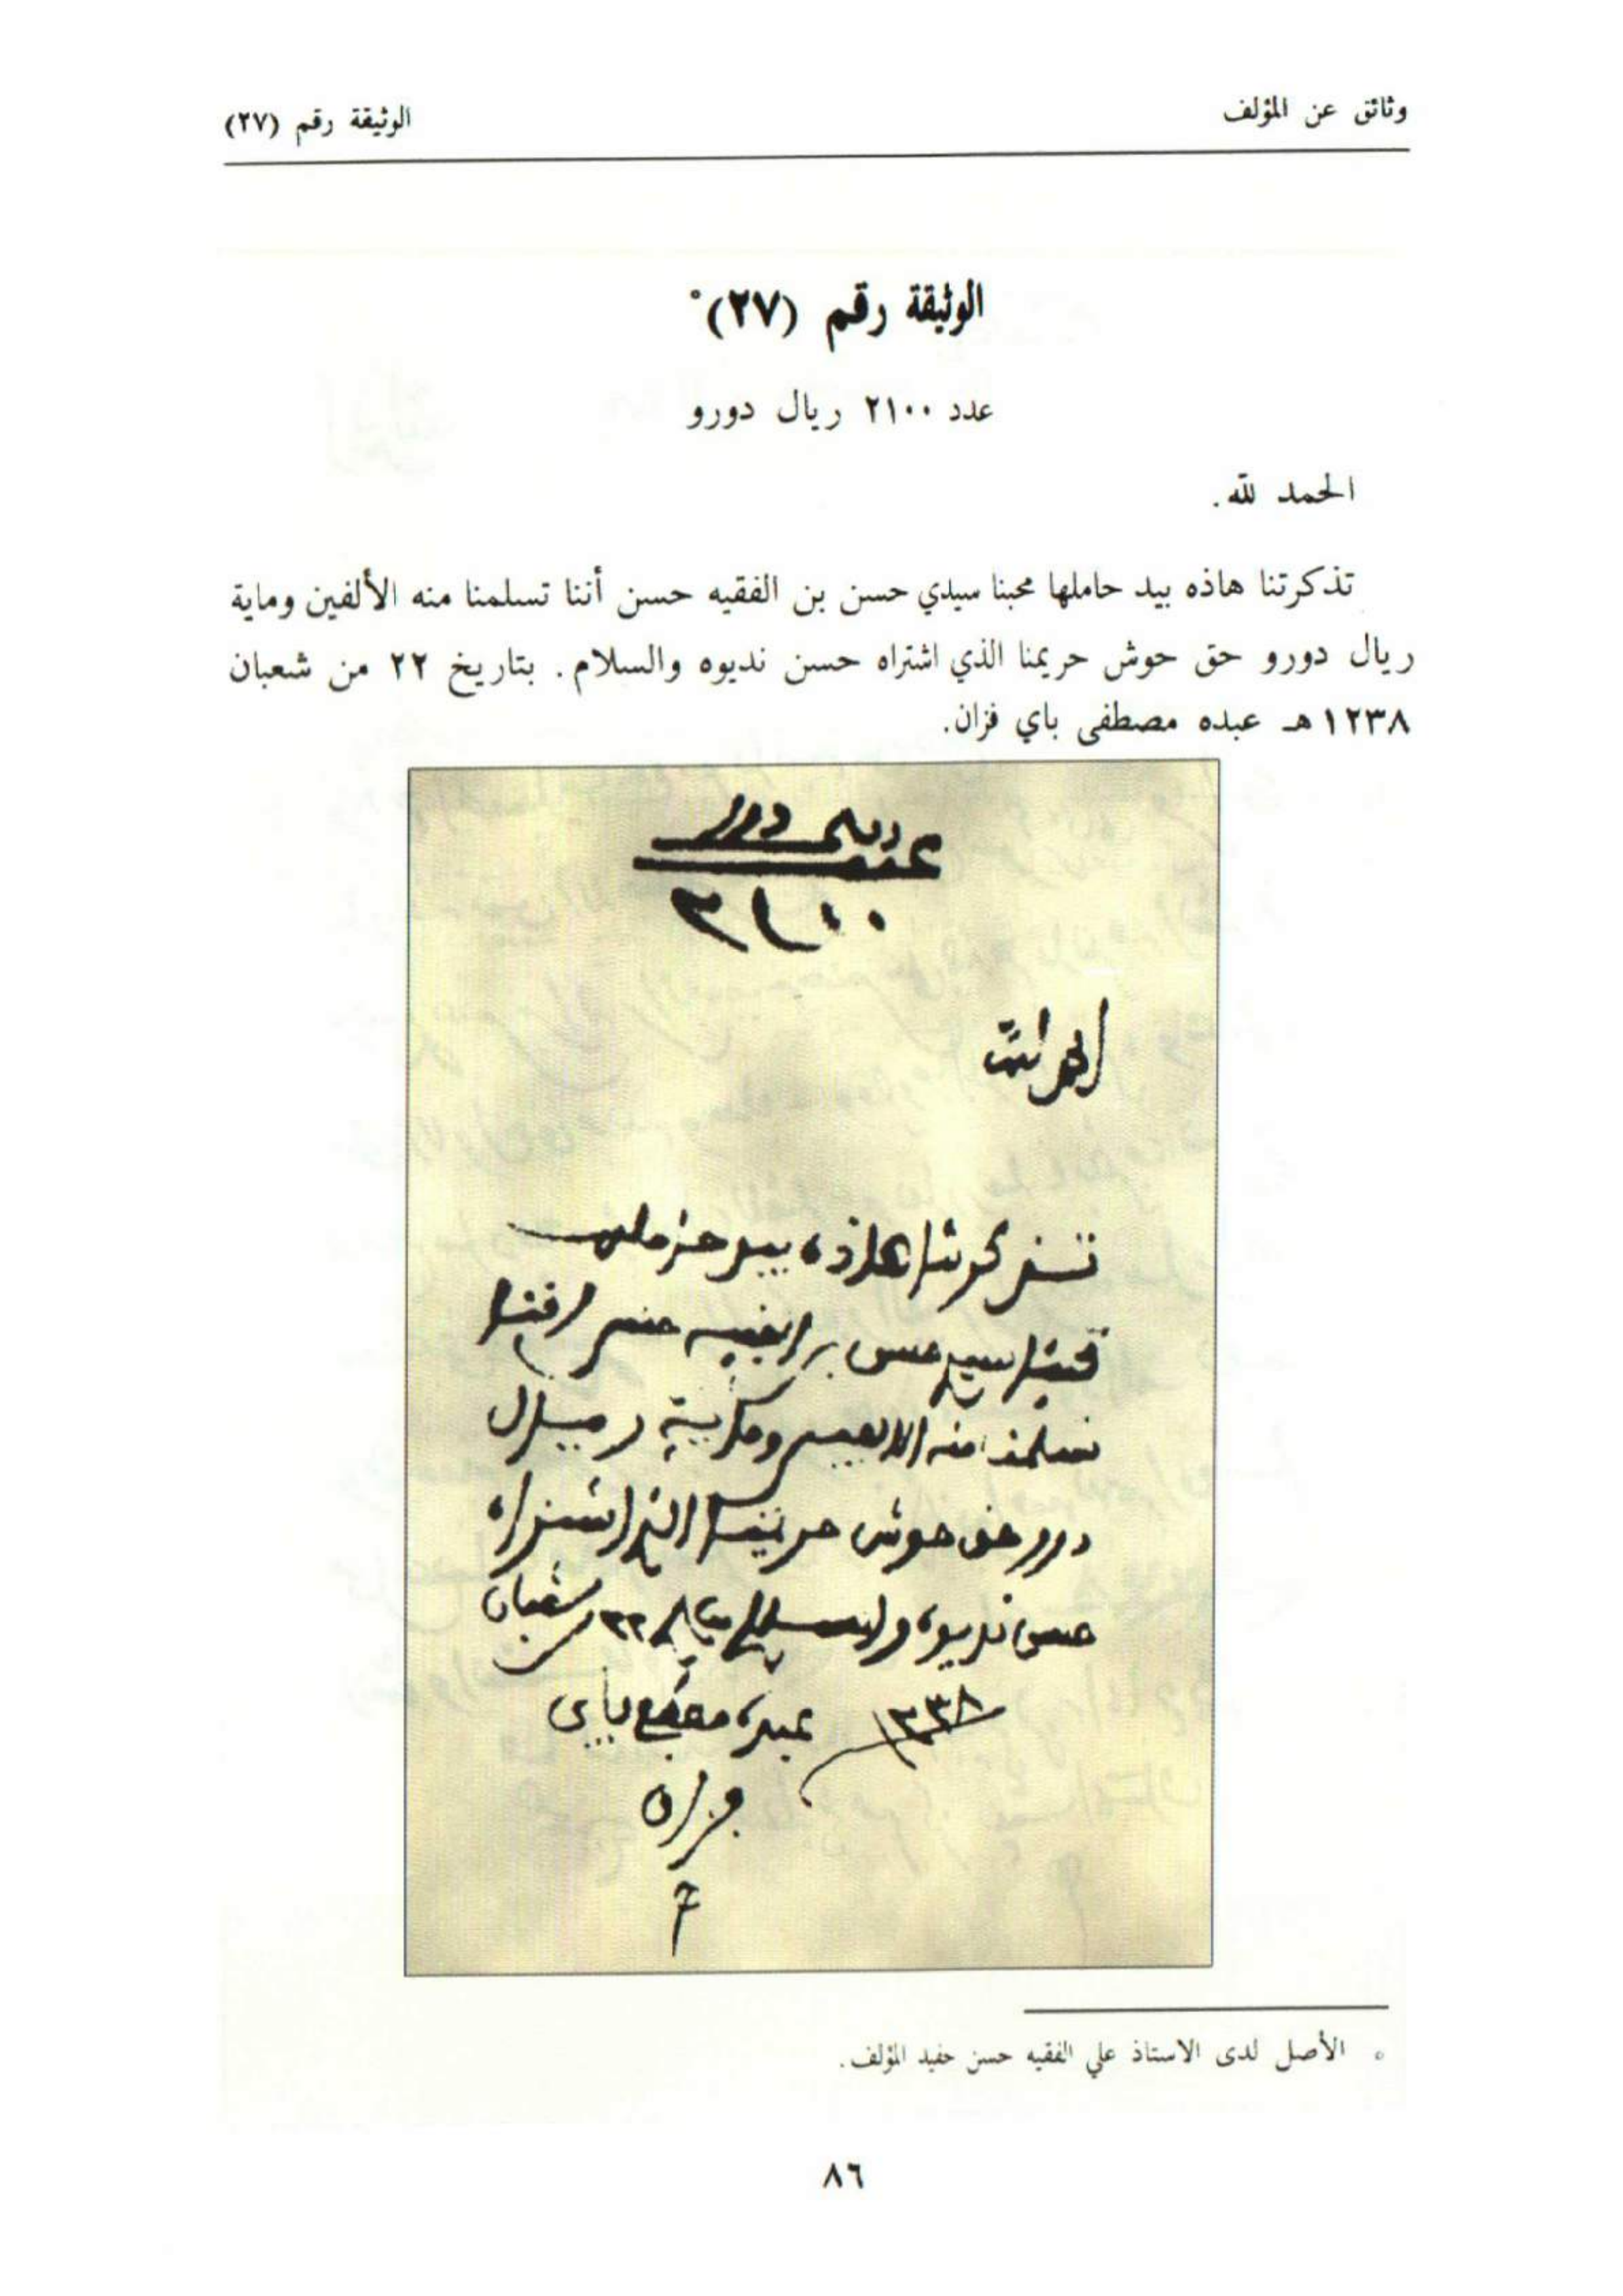 وثائق عن المؤلف
الوثيقة رقم (٢٧)
الوثيقة رقم (٢٧)°
عدد ٢١٠٠ ريال دورو
الحمد لله.
تذكرتنا هاذه بيد حاملها محبنا سيدي حسن بن الفقيه حسن أننا تسلمنا منه الألفين وماية
ريال دورو حق حوش حريمنا الذي اشتراه حسن نديوه والسلام. بتاريخ ٢٢ من شعبان
١٢٣٨ هـ عبده مصطفى باي فزان.
عدد ريال دورو
٢١٠٠
الحمد لله
تذكرتنا هاذه بيد حاملها
محبنا سيدي حسن بن الفقيه حسن اننا
تسلمنا منه الالفين وماية ريال
دورو حق حوش حريمنا الذي اشتراه
حسن نديوه والسلام بتاريخ ٢٢ من شعبان
١٢٣٨ عبده مصطفى باي
فزان
° الأصل لدى الاستاذ علي الفقيه حسن حفيد المؤلف.
٨٦